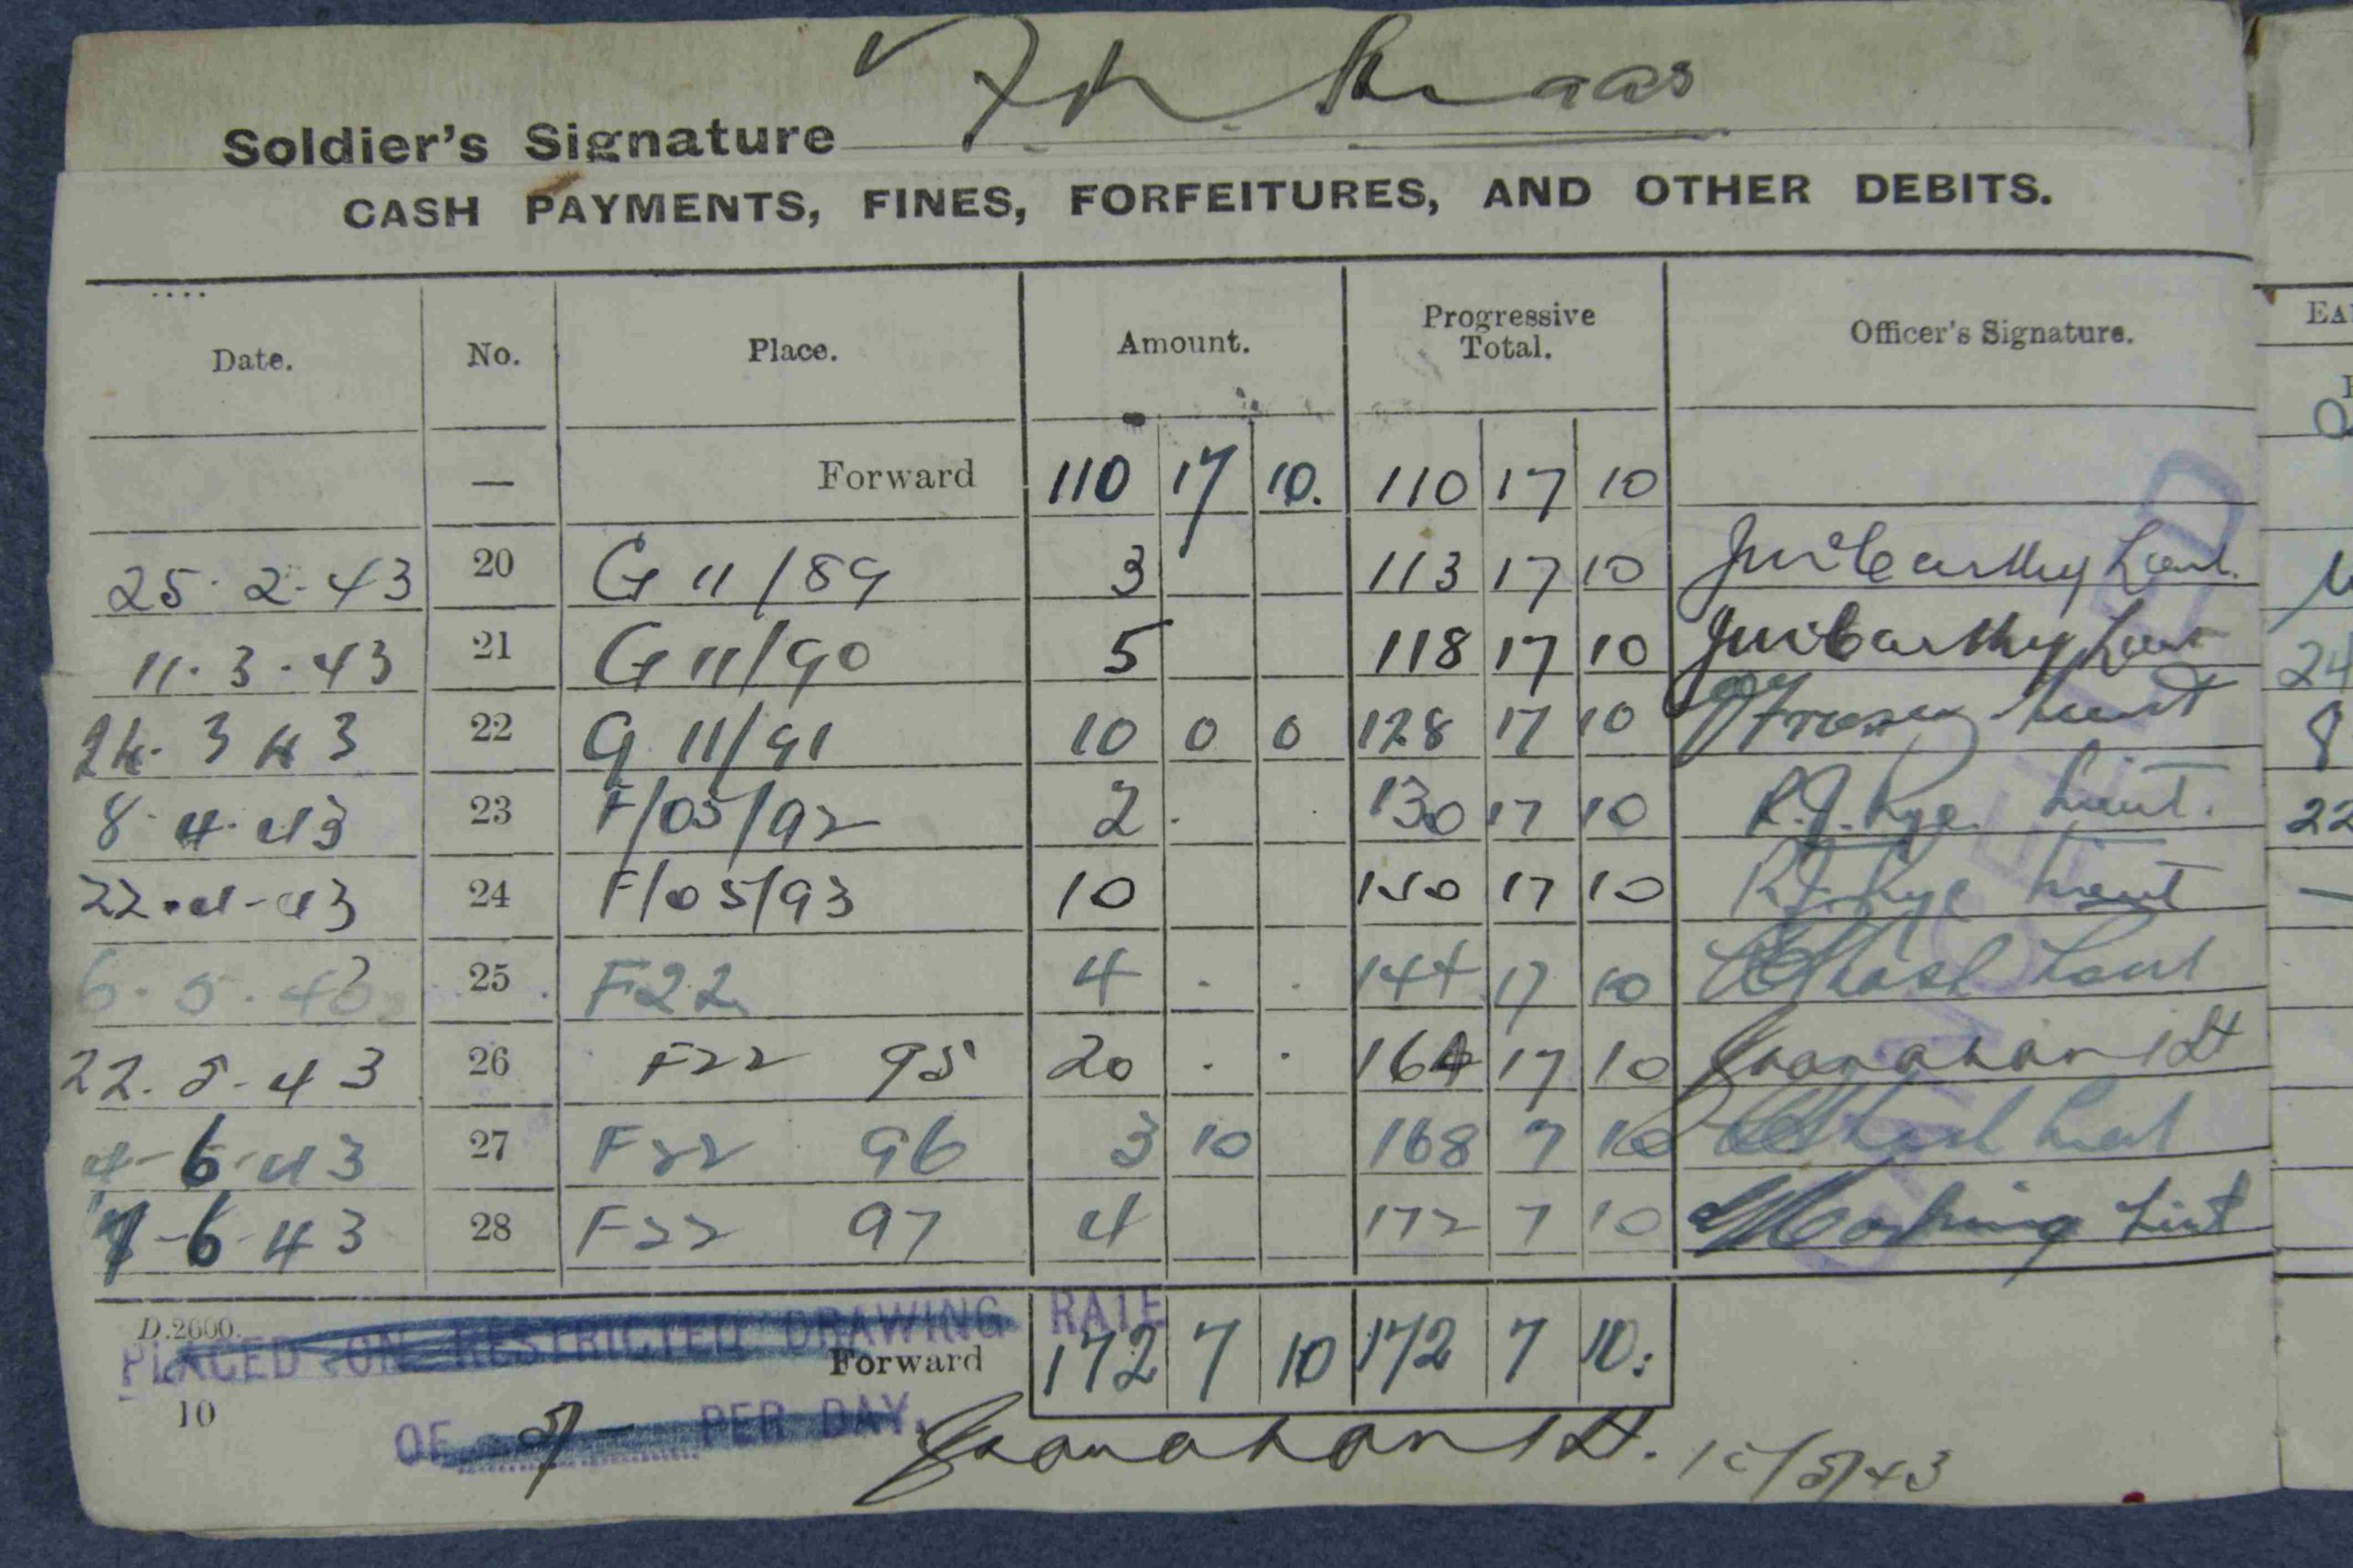 Soldier's Signature
CASH PAYMENTS, FINES, FORFEITURES, AND OTHER DEBITS.
Date. No. Place. Amount. Progressive Total. Officer's Signature.
— Forward 110 17 10. 110 17 10
25.2.43 20 G 11/89 3 113 17 10 Lieut.
11.3.43 21 G 11/90 5 118 17 10 Lieut
24.3 43 22 G 11/91 10 0 0 128 17 10 Lieut
8.4.43 23 F/05/92 2 . . 130 17 10 R.J. Rye Lieut.
22.4-43 24 F/05/93 10 140 17 10 R.J. Rye Lieut
6.5.43 25 F22 4 . . 144 17 10 Lieut
22.5.43 26 F22 95 20 . . 164 17 10 Lt
4-6-43 27 F22 96 3 10 168 7 10 Lieut
7-6-43 28 F22 97 4 172 7 10 Lieut
D.2600.
PLACED ON RESTRICTED DRAWING RATE
Forward 172 7 10 172 7 10.
10
OF 5/- PER DAY.
Lt. /5/43